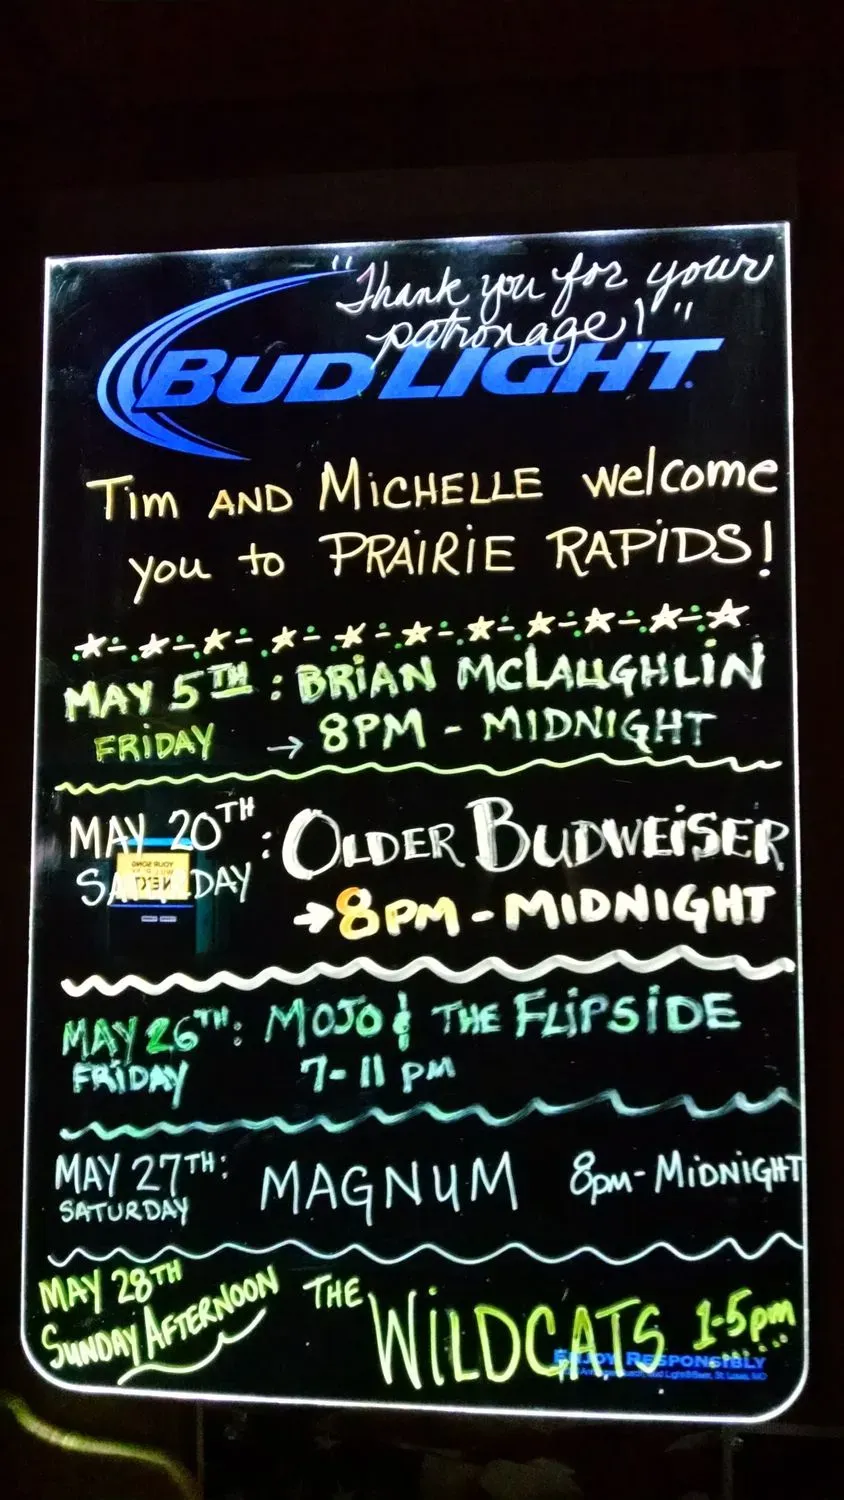 "Thank you for your
patronage!"
BUD LIGHT.
Tim AND MiCHELLE welcome
you to PRAiRiE RAPiDS!
MAY 5TH : BRiAN MCLAUGHLiN
FRiDAY → 8PM - MiDNiGHT
MAY 20TH : OLDER BUDWEiSER
SATURDAY → 8PM - MiDNiGHT
YOUR SONG
NEXT
MAY 26TH: MOJO & THE FLiPSiDE
FRiDAY 7-11 PM
MAY 27TH: MAGNUM 8pm - MiDNiGHT
SATURDAY
MAY 28TH THE WiLDCATS 1-5pm
SUNDAY AFTERNOON
ENJOY RESPONSIBLY
St. Louis, MO